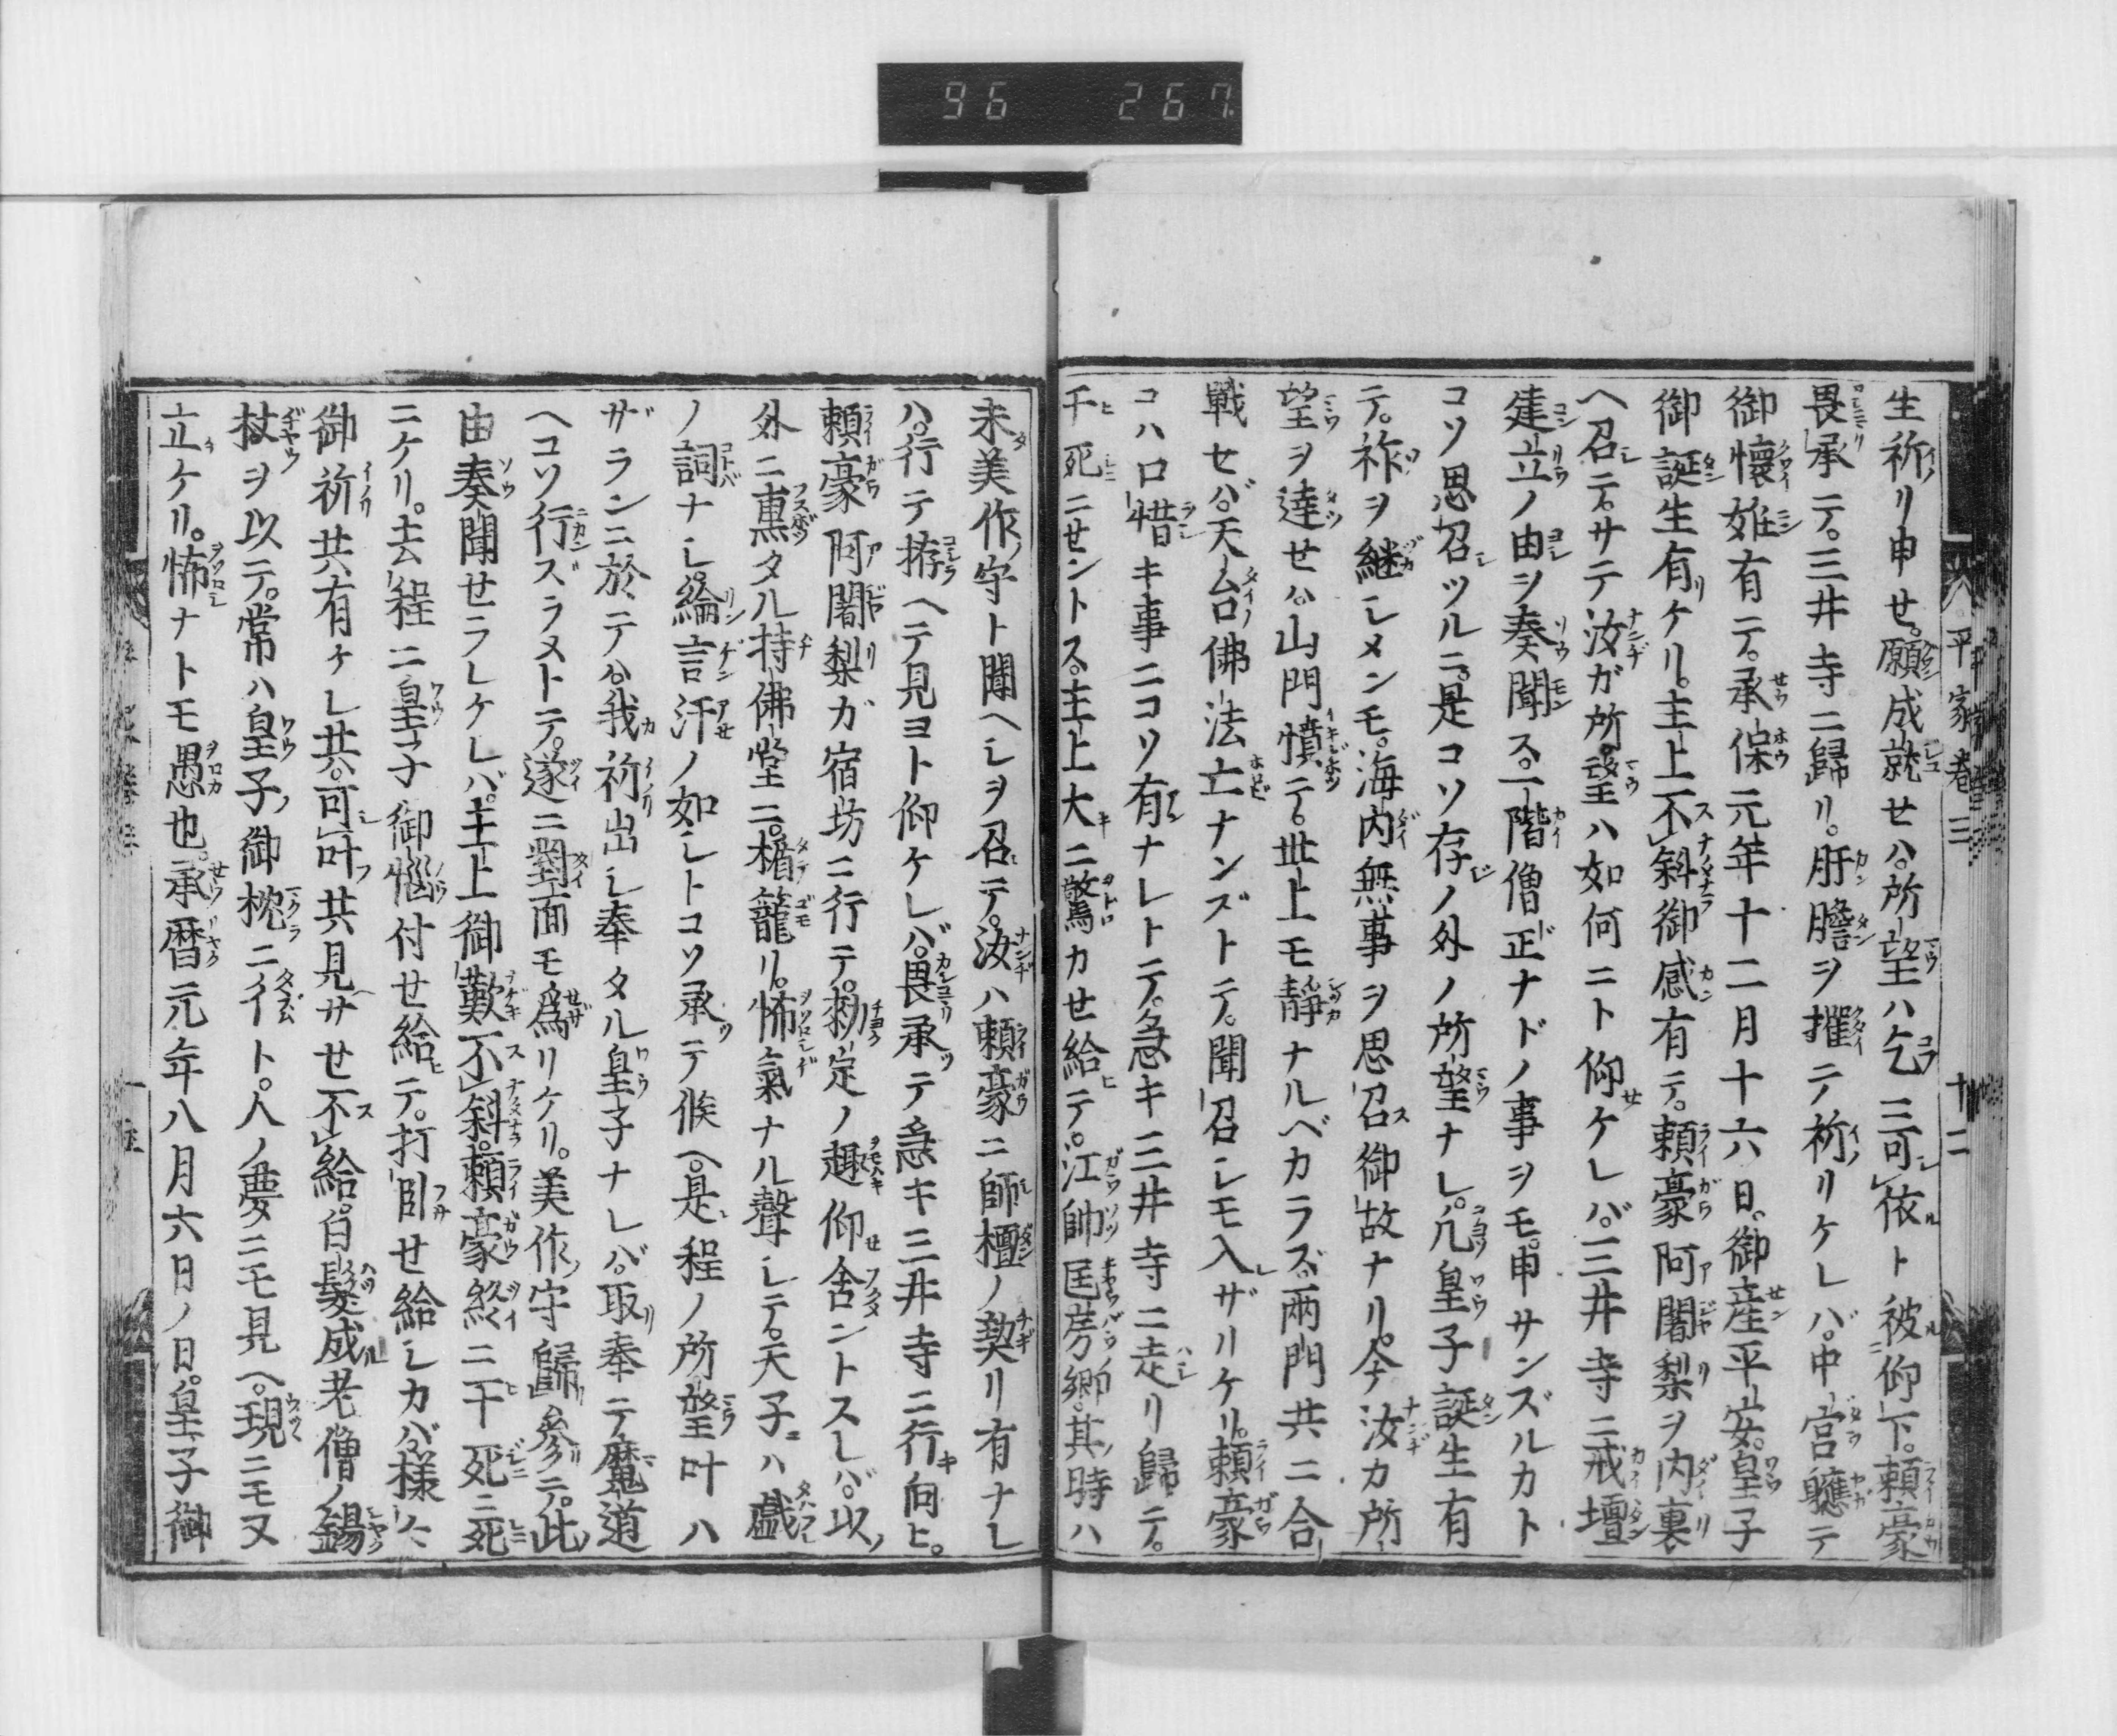 96 267
平家卷三 十二
生祈リ申セ。願成就セハ。所望ハ乞ニ可依ト被仰下。頼豪
畏承テ。三井寺ニ歸リ。肝膽ヲ摧テ祈リケレバ。中宮軈テ
御懷姙有テ。承保元年十二月十六日。御産平安。皇子
御誕生有ケリ。主上不斜御感有テ。頼豪阿闍梨ヲ内裏
ヘ召テ。サテ汝ガ所望ハ如何ニト仰ケレバ。三井寺ニ戒壇
建立ノ由ヲ奏聞ス。一階僧正ナドノ事ヲモ。申サンズルカト
コソ思召ツルニ。是コソ存ノ外ノ所望ナレ。凡皇子誕生有
テ。祚ヲ継シメンモ。海内無事ヲ思召御故ナリ。今汝カ所
望ヲ達セハ。山門憤テ。世上モ靜ナルベカラズ。兩門共ニ合
戰セバ。天台佛法亡ナンズトテ。聞召シモ入ザリケリ。頼豪
コハ口惜キ事ニコソ有ナレトテ。急キ三井寺ニ走リ歸テ。
干死ニセントス。主上大ニ驚カセ給テ。江帥匡房卿。其時ハ
未美作守ト聞ヘシヲ召テ。汝ハ頼豪ニ師檀ノ契リ有ナレ
ハ。行テ拵ヘテ見ヨト仰ケレバ。畏承テ急キ三井寺ニ行向ヒ。
頼豪阿闍梨ガ宿坊ニ行テ。勅定ノ趣仰舍ントスレバ。以
外ニ熏タル持佛堂ニ。楯籠リ。怖氣ナル聲シテ。天子ニハ戯
ノ詞ナシ。綸言汗ノ如シトコソ承テ候ヘ。是程ノ所望叶ハ
ザランニ於テハ。我祈出シ奉タル皇子ナレバ。取奉テ魔道
ヘコソ行ズラメトテ。遂ニ對面モ爲リケリ。美作守歸參テ。此
由奏聞セラレケレバ。主上御歎不斜。頼豪終ニ干死ニ死
ニケリ。去程ニ皇子御惱付セ給テ。打臥セ給シカバ。樣々ニ
御祈共有ケレ共。可叶共見サセ不給。白髮成老僧ノ錫
杖ヲ以テ。常ハ皇子ノ御枕ニ彳ト。人ノ夢ニモ見ヘ。現ニモ又
立ケリ。怖ナトモ愚也。承暦元年八月六日ノ日。皇子御